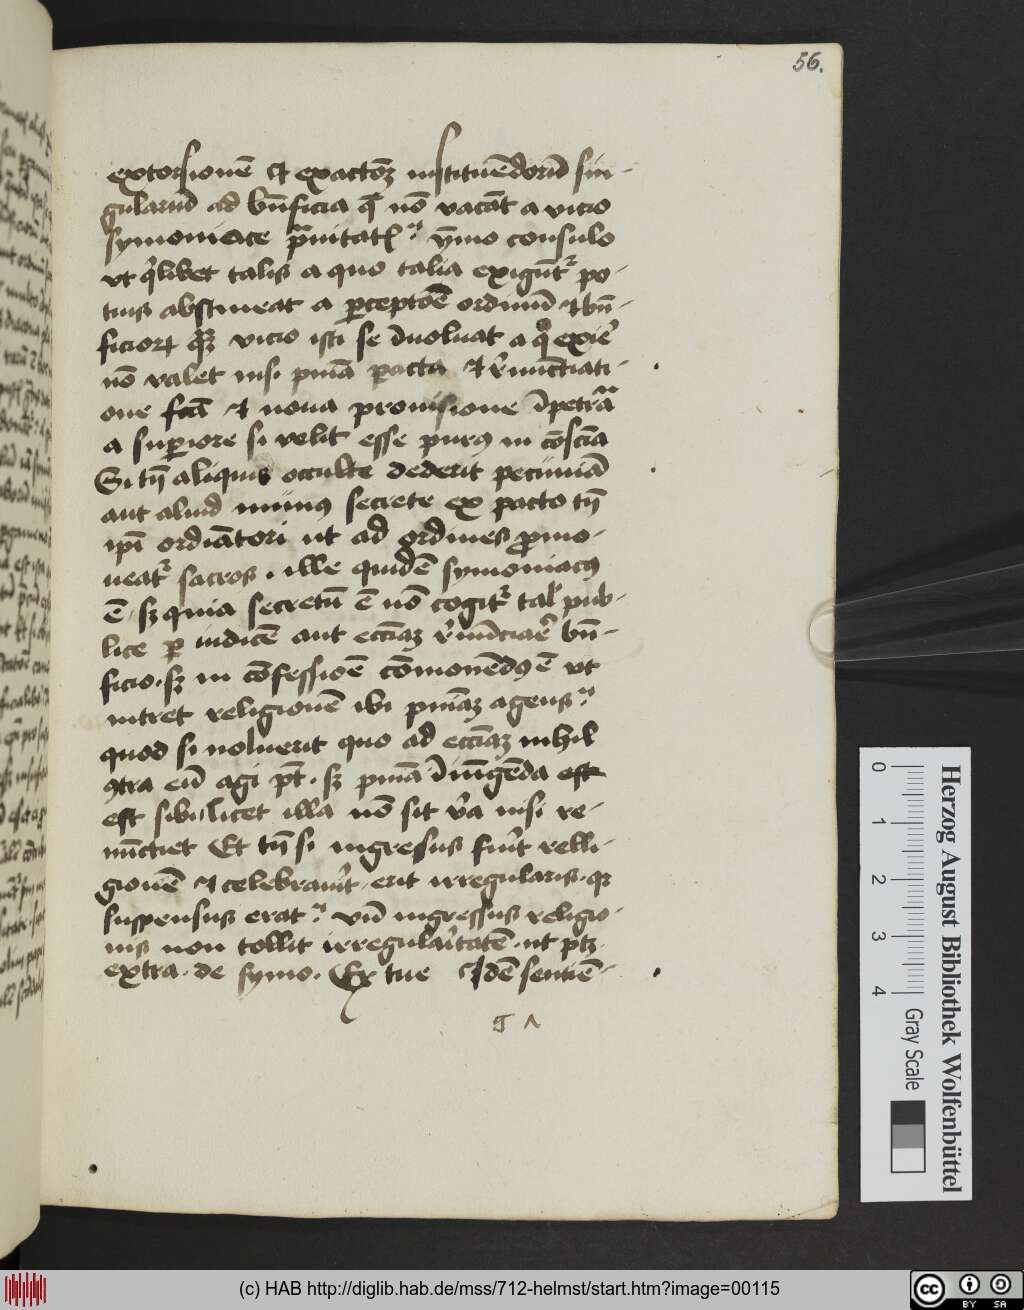 56.
extorsionē et exactōꝫ instituēdorū sin-
gulariū ad bn̄ficia q̄ nō vacāt a vicio
symoniace p̄uitatꝭ ymo consulo
vt qͥlibet talis a quo talia exigūtᷣ po-
tius abstineat a ꝑceptōe ordinū et bn̄-
ficioꝝ qͣꝫ vicio isti se īuoluat a qͦ exiē
nō valet nisi pn̄ia ꝑacta et r̄nūctiati-
one fc̄a et noua promisione īpetrata
a suꝑiore si velit esse purꝰ in cōsciā
Si tn̄ aliquis occulte dederit pecuniā
aut aliud munus secrete ex pacto tn̄
ipi ordiātori ut ad ordines ꝓmo-
ueatᷣ sacros. ille quidē symoniacꝰ
ē. sꝫ quia secretū ē nō cogitᷣ tal' pub-
lice ꝑ iudicē aut eccīaꝫ r̄nūciaē bn̄-
ficio. sꝫ in cōfessioē cōmonēdꝰ ē vt
intret religionē ibi pn̄iaꝫ agens
quod si noluerit quo ad eccīaꝫ nihil
ꝯtra eū agi pt̄. sꝫ pn̄ia īiūgēda est
est sibi licet illa nō sit v̄a nisi re-
nūctiet Et tn̄ si ingressus fuīt relli-
gionē et celebrauīt. erit irregularis. qꝛ
suspensus erat. vn̄ ingressus religio-
nis non tollit irregulaītatē. ut ptꝫ.
extra. de symo. Ex tue Idē sentiē-
g 1
Herzog August Bibliothek Wolfenbüttel
0 1 2 3 4 Gray Scale
(c) HAB http://diglib.hab.de/mss/712-helmst/start.htm?image=00115
cc BY SA